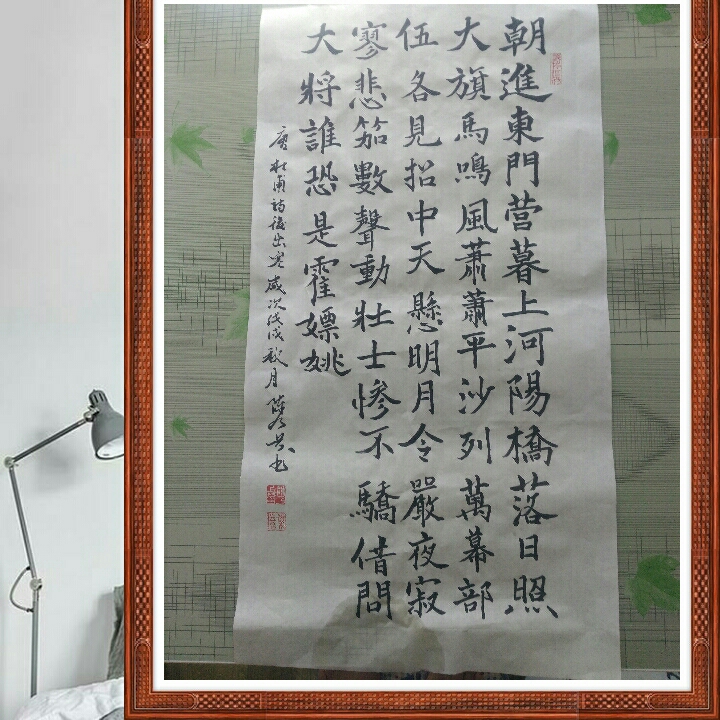 朝進東門营暮上河陽橋落日照
大旗馬鳴風蕭蕭平沙列萬幕部
伍各見招中天懸明月令嚴夜寂
寥悲笳數聲動壯士慘不驕借問
大將誰恐是霍嫖姚
唐杜甫詩後出塞歲次戊戌秋月